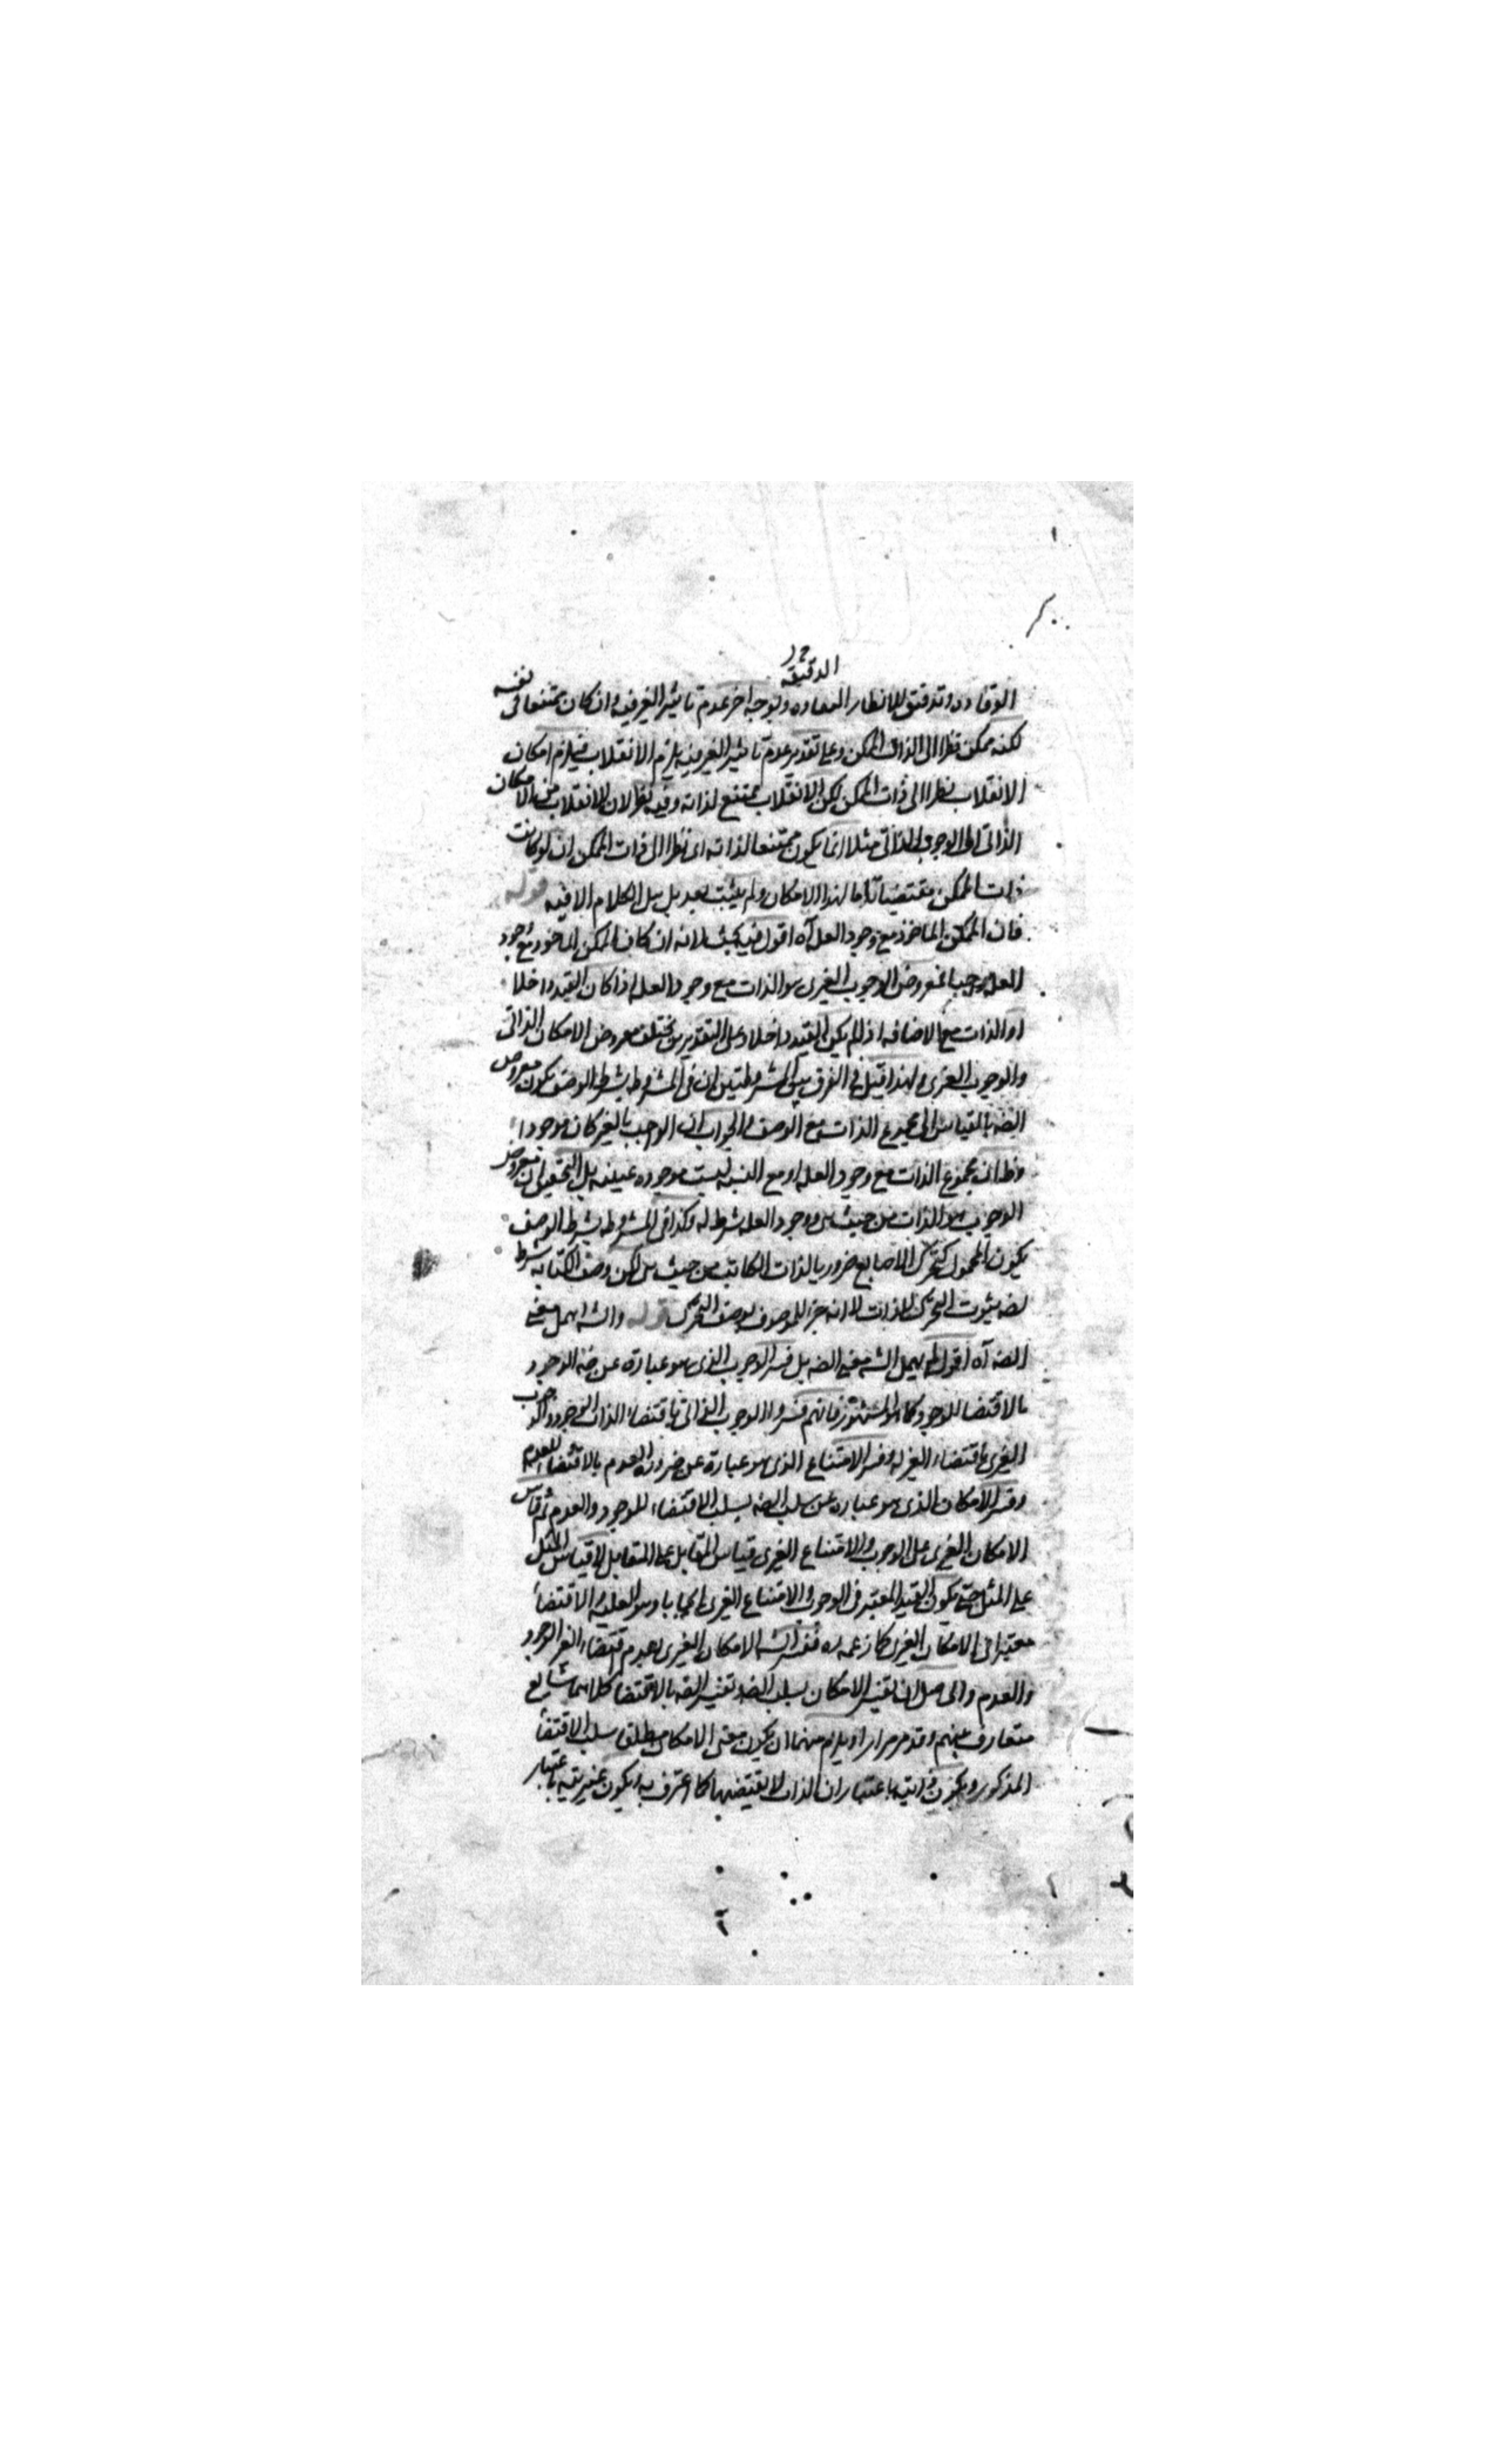 الدقيقة
الوقاده وتدقيق للانظار المعاده وبوجه اخر عدم تاثير الغير فيه وان كان ممتنعا فى نفسه
لكنه ممكن نظرا الى الذات الممكن وعلى تقدير عدم تاثير الغير فيه يلزم الانقلاب فيلزم امكان
الانقلاب نظرا الى ذات الممكن لكن الانقلاب ممتنع لذاته وفيه نظر لان الانقلاب من الامكان
الذاتى الى الوجوب الذاتى مثلا انما يكون ممتنعا لذاته اى نظرا الى ذات الممكن ان لو كانت
ذات الممكن مقتضيا لهذا الامكان ولم يثبت بعد بل بل الكلام الا فيه قوله
فان الممكن الماخوذ مع وجود العله آه اقول فيه بحث لانه ان كان الممكن الماخوذ مع وجود
العله واجبا فمعروض الوجوب الغيرى هو الذات مع وجود العله اذا كان القيد داخلا
او الذات مع الاضافه اذا لم يكن القيد داخلا وعلى التقديرين يختلف معروض الامكان الذاتى
والوجوب الغيرى ولهذا قيل فى الفرق بين المشروطتين ان فى المشروطه بشرط الوصف يكون معروض
الضه بالقياس الى مجموع الذات مع الوصف والجواب ان الواجب بالغير كان موجودا
وظ ان مجموع الذات مع وجود العله او مع النسبه ليست موجوده عينيه بل التحقيق ان معروض
الوجوب هو الذات من حيث هى ووجود العله شرط له وكذا فى المشروطه بشرط الوصف
يكون المحمول كتحرك الاصابع ضروريا لذات الكاتب من حيث هى لكن وصف الكتابه شرط
لضه ثبوت التحرك للذات لا انه جزء للموصوف بوصف التحرك قوله والشه اهمل معنى
الضه آه اقول لم يهمل الشه معنى الضه بل فسر الوجوب الذى هو عبارة عن ضه الوجود
بالاقتضا للوجود كما هو المشهور فانهم فسروا الوجوب الذاتى باقتضاء الذات الوجود والوجوب
الغيرى باقتضاء الغير له وفسر الامتناع الذى هو عبارة عن ضروره العدم بالاقتضاء للعدم
وفسر الامكان الذى هو عباره عن سلب الضه بسلب الاقتضاء للوجود والعدم ثم قاس
الامكان الغيرى على الوجوب والامتناع الغيرى قياس المقابل على المقابل لا قياس المثل
على المثل حتى يكون القيد المعتبر فى الوجوب والامتناع الغيرى ايجابا وهو العليه والاقتضا
معتبرا فى الامكان الغيرى كما زعمه ره ففسر الشه الامكان الغيرى بعدم اقتضاء الغير الوجود
والعدم والحاصل ان تفسير الامكان بسلب الضه تفسير الضه بالاقتضا كلاهما شايع
متعارف بينهم وقد مر مرارا ويلزم منهما ان يكون معنى الامكان مطلق سلب الاقتضا
المذكور ويكون ذاتيته باعتبار ان الذات لا يقتضيها كما اعترف به ويكون غيريته باعتبار